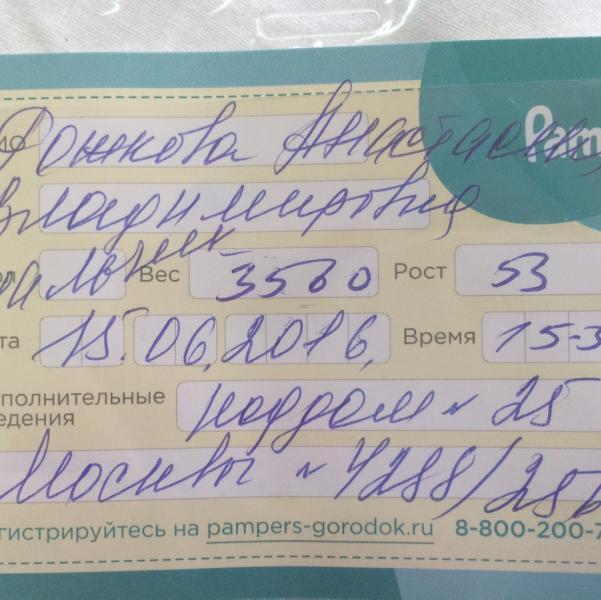 Pam
ИО Рожкова Анастасия
Владимировна
мальчик Вес 3560 Рост 53
та 15.06.2016. Время 15-3
полнительные роддом № 25
едения
Москвы № 4288/256
гистрируйтесь на pampers-gorodok.ru 8-800-200-7